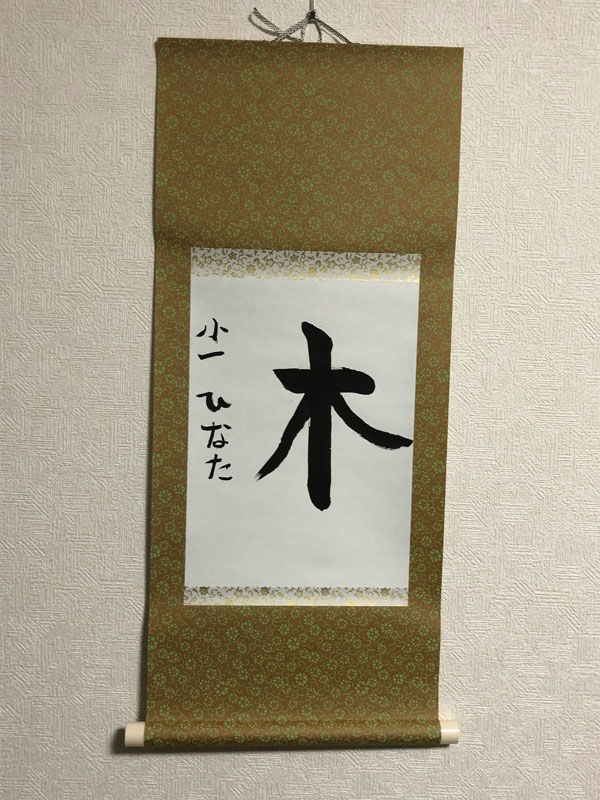 木
小一 ひなた